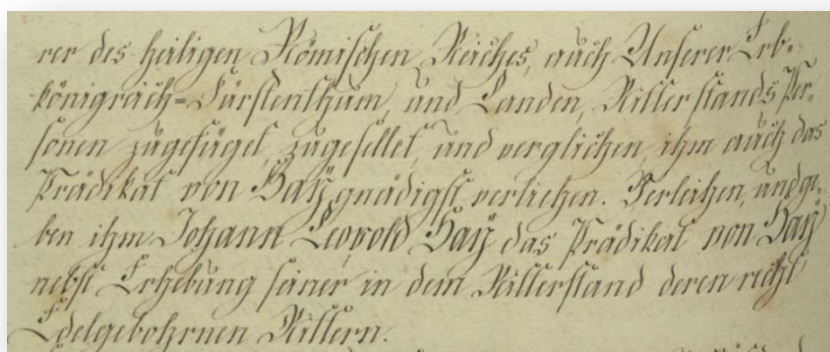 rer des heiligen Römischen Reiches, auch Unserer Erb-
königreich= Fürstenthum, und Landen, Ritterstands Per-
sonen zugefüget, zugesellet, und verglichen, ihm auch das
Prädikat von Haÿ gnädigst verliehen. Verleihen, und ge-
ben ihm Johann Leopold Haÿ das Prädikat von Haÿ
nebst Erhebung seiner in dem Ritterstand deren recht
Edelgebohrnen Rittern.